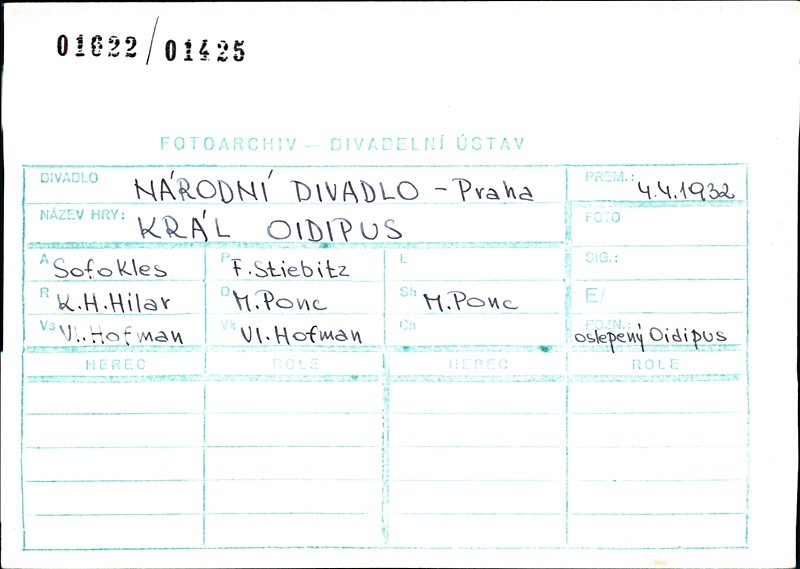 01622/01425
FOTOARCHIV — DIVADELNÍ ÚSTAV
DIVADLO NÁRODNÍ DIVADLO - Praha PREM.: 4.4.1932
NÁZEV HRY: KRÁL OIDIPUS FOTO
A Sofokles P F. Stiebitz L SIG.:
R K.H.Hilar D M.Ponc Sh M.Ponc E/
Vs Vl.Hofman Vk Vl.Hofman Ch POZN.: oslepený Oidipus
HEREC ROLE HEREC ROLE